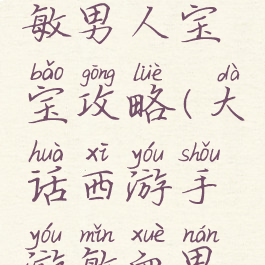 敏男人宝
bǎo gōng lüè dà
宝攻略(大
huà xī yóu shǒu
话西游手
yóu mǐn xuè nán
游敏血男